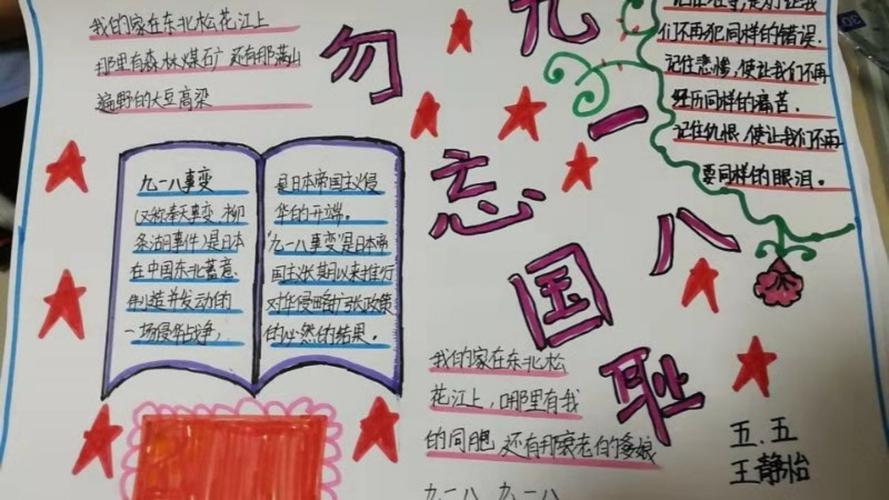 我的家在东北松花江上
那里有森林煤矿 还有那满山
遍野的大豆高梁
勿忘国耻
九一八
们不再犯同样的错误.
记住悲惨,使让我们不再
经历同样的痛苦.
记住仇恨,使让我们不再
要同样的眼泪。
九一八事变
(又称奉天事变、柳
条湖事件)是日本
在中国东北蓄意
制造并发动的
一场侵华战争,
是日本帝国主义侵
华的开端。
"九一八事变"是日本帝
国主义长期以来推行
对华侵略扩张政策
的必然的结果。
我的家在东北松
花江上,哪里有我
的同胞 还有那衰老的爹娘
九一八 九一八
五.五
王静怡